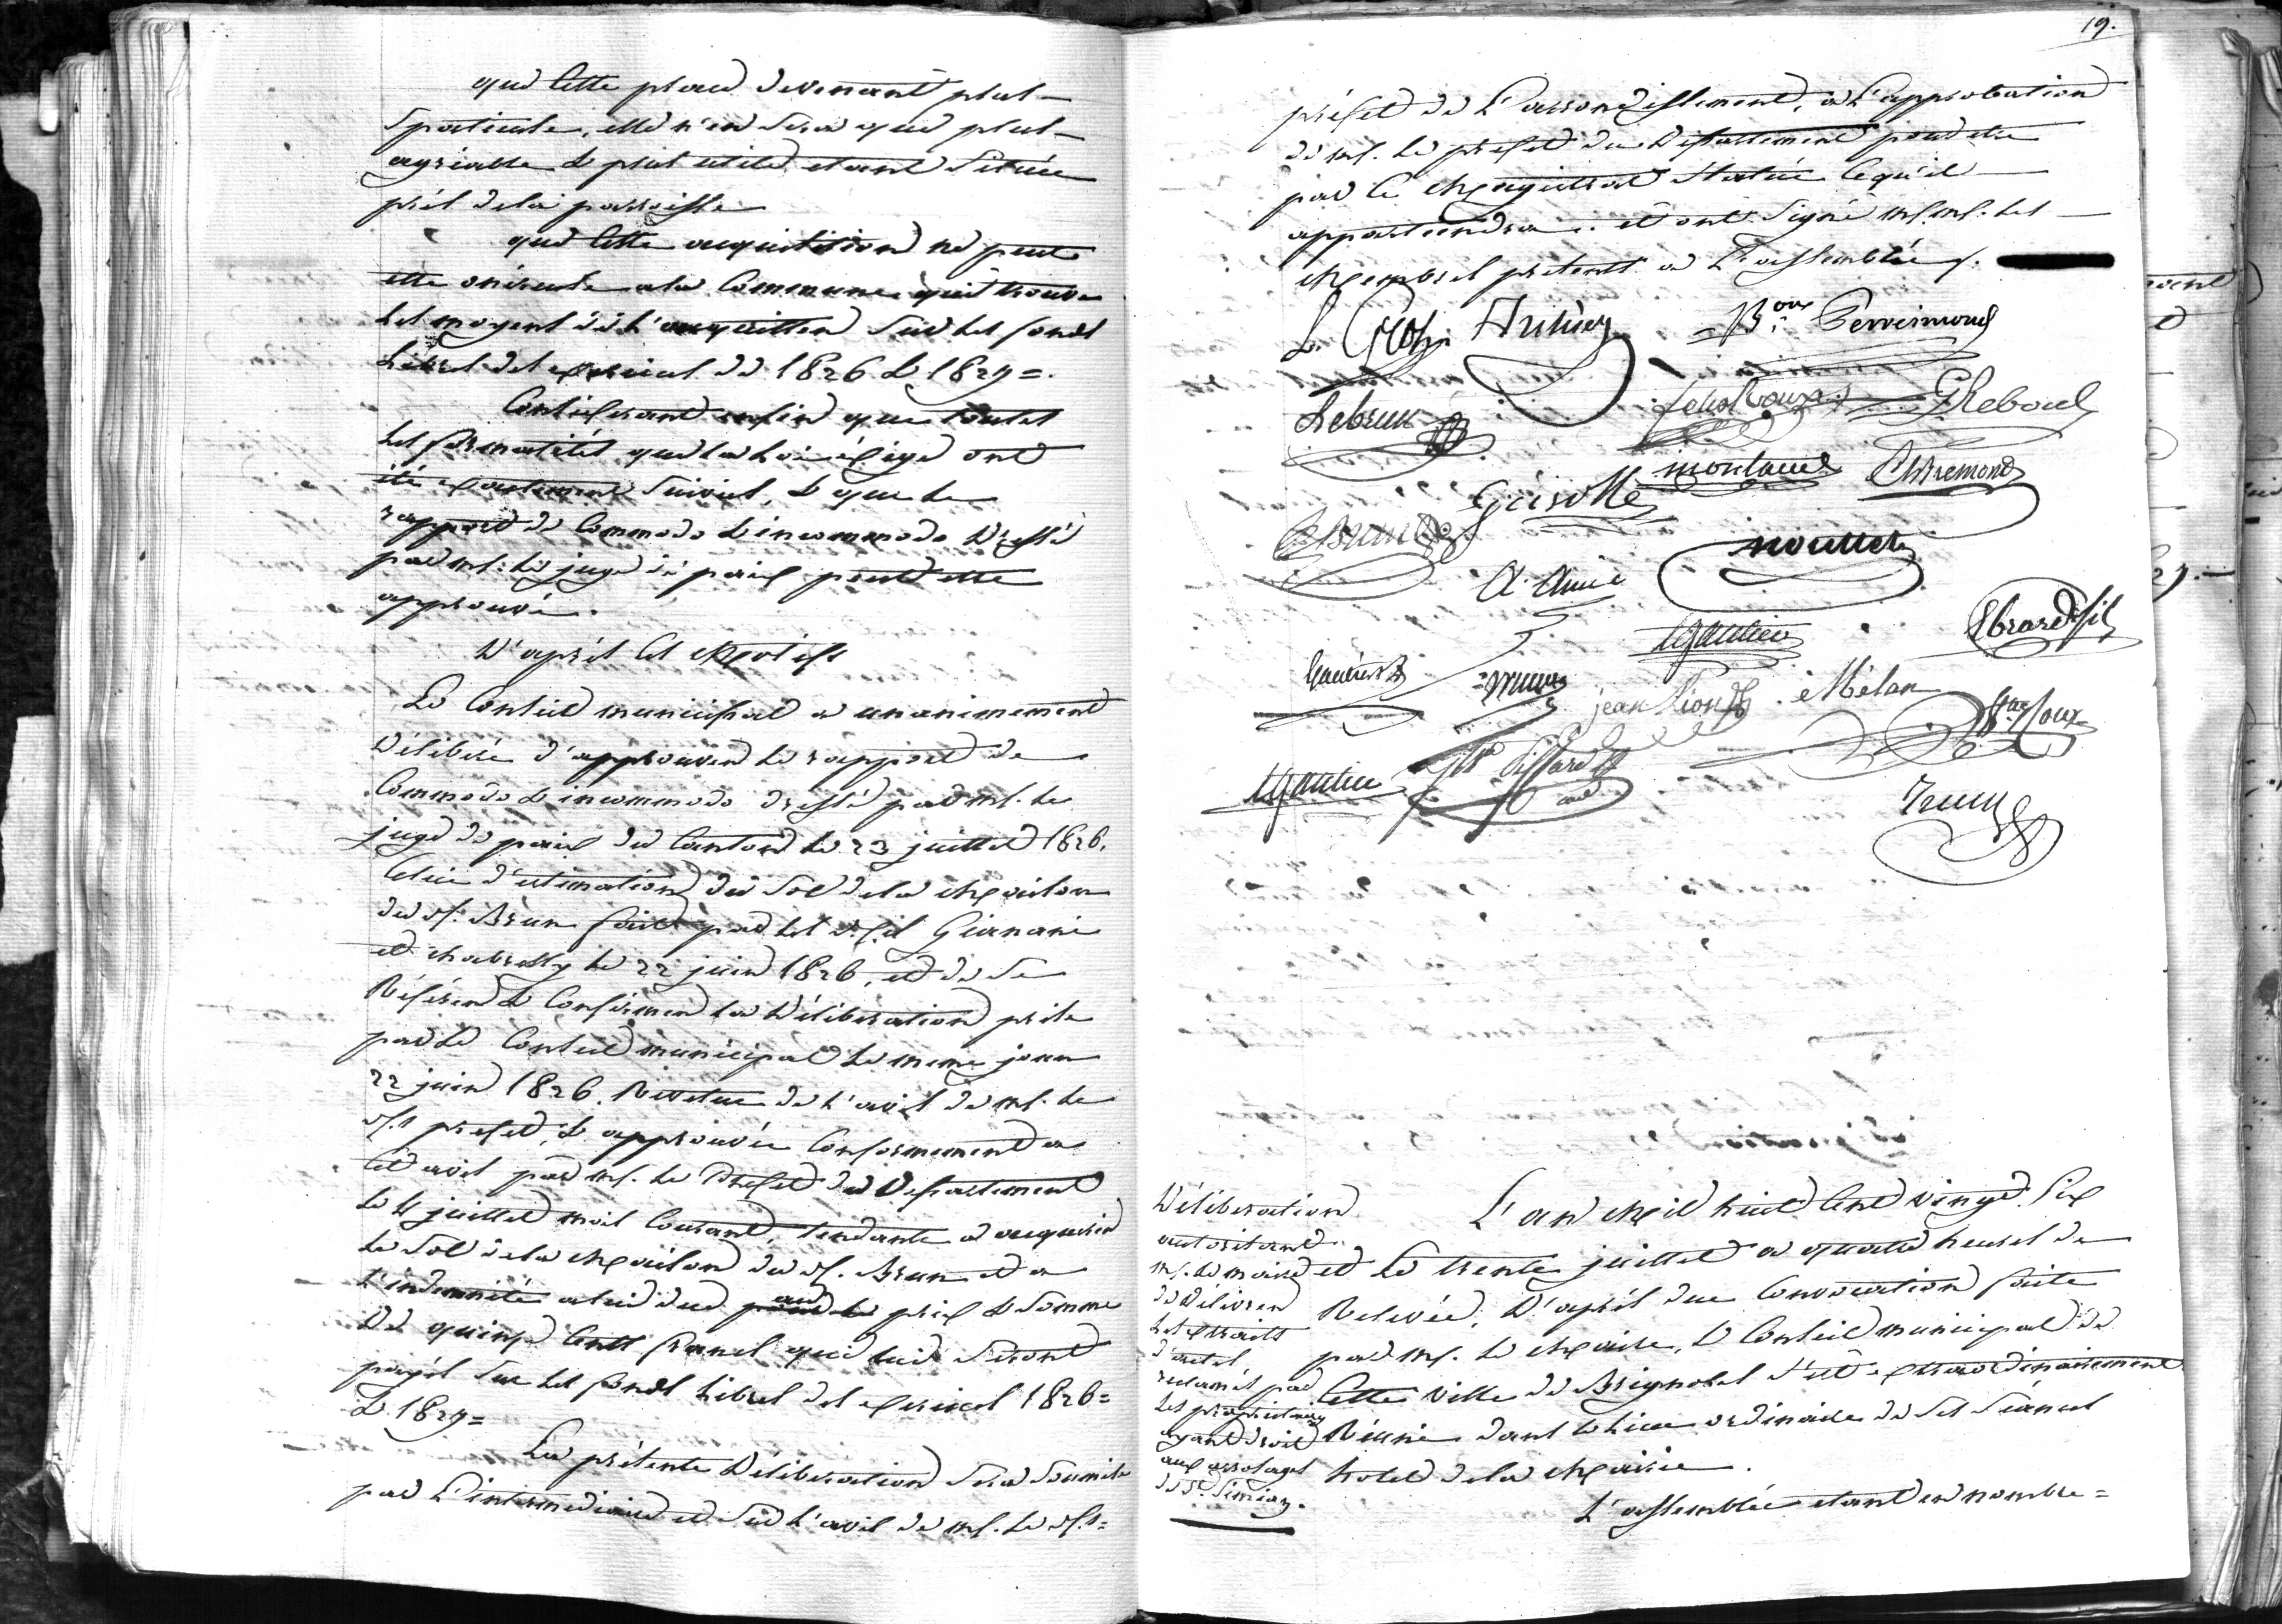 que cette place devenant plus
spatieuse, elle n'en sera que plus
agréable & plus utile, etant située
près dela parroisse
que cette acquisition ne peut
etre onéreuse ala Commune qui trouve
les moyens de l'acquitter sur les fonds
libres des exercices de 1826 & 1827=.
Considerant enfin que toutes
les formalités que la loi éxige ont
été exactement suivies, & que le
rapport de Commodo & incommodo dressé
par mr. le juge de paix peut etre
approuvé.
D'après les motifs
Le Conseil municipal a unanimement
délibéré d'approuver le rapport de
Commodo & incommodo dressé par mr. le
juge de paix du Canton le 23 juillet 1826,
celui d'estimation du sol dela Maison
du Sr. Brun fait par les Srs.
et le 22 juin 1826, et de se
Référer & Confirmer la délibération prise
par le Conseil municipal le meme jour
22 juin 1826. Revetue de l'avis de mr. le
Ss préfet, & approuvée Conformement a
cet avis par mr. le Préfet du Departement
le 11 juillet mois Courant, tendante a acquerir
le sol dela Maison du Sr. Brun et a
l'indemnité a lui due par le prix & somme
De quinze Cents francs qui lui seront
payés sur les fonds libres des exercices 1826=
& 1827=
La présente Délibération sera soumise
par l'intermediaire et sur l'avis de mr. le Ss=
19.
préfet de l'arrondissement, a l'approbation
de mr. le préfet du Departement pour etre
par ce Magistrat statué ce qu'il
appartiendra. et ont signé mr. mr. les
Membres présents a l'assemblée.
=Bon Perreimond
Lebrun
Reboul
montaud
A. Amic
gautier
Ebrard fils
jean Mélan
gautier
Délibération
autorisant
mr. le maire
de délivrer
les extraits
d'actes
reclamés par
les propriétaires
ayant droit
aux arrosages
de St. Simian.
L'an Mil huit Cent Vingt Six
et le trente juillet a quatre heures de
Relevée, D'après due Convocation faite
par mr. le Maire, le Conseil municipal de
Cette Ville de Brignoles s'est extraordinairement
Réuni dans le lieu ordinaire de ses séances
hotel dela Mairie.
L'assemblée etant en nombre=